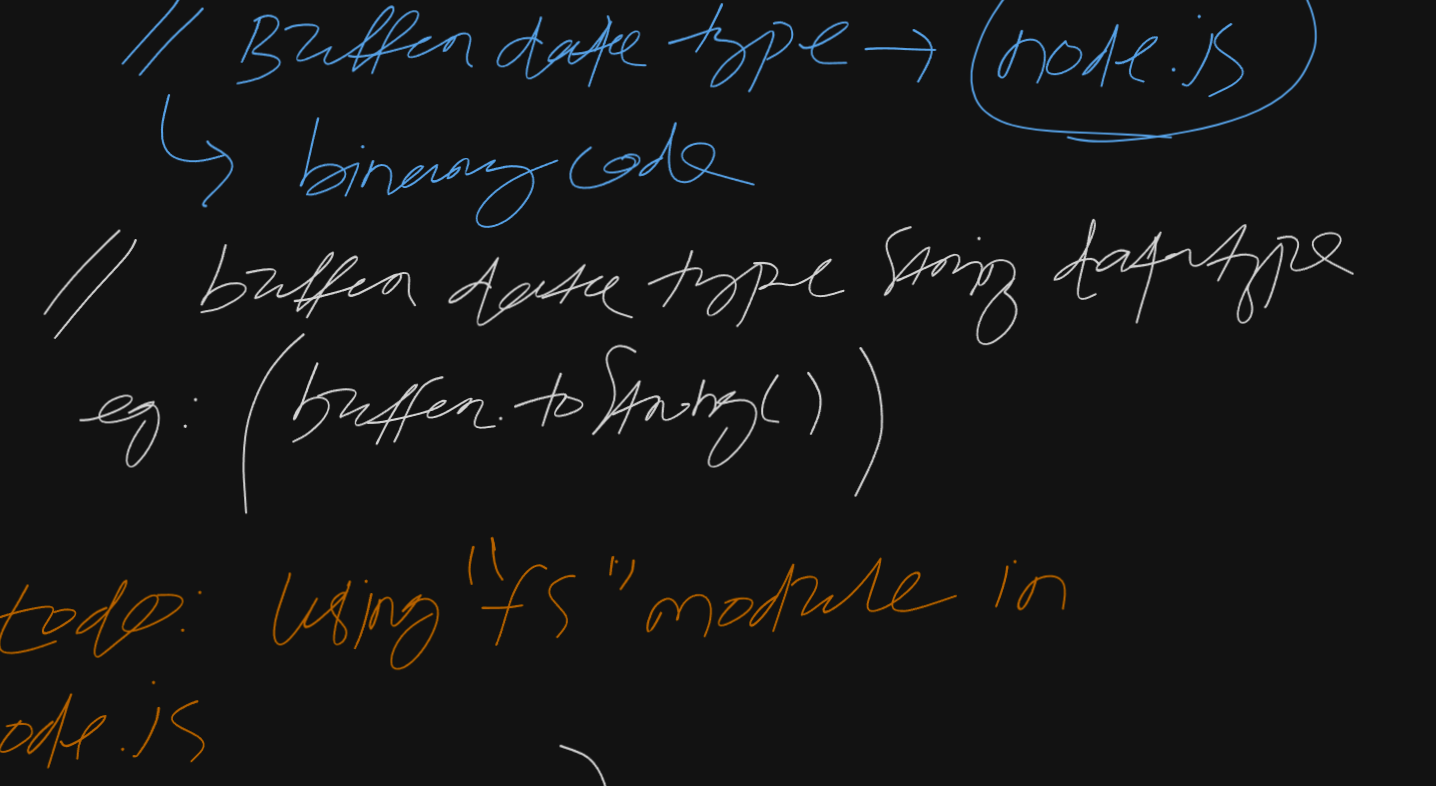 // Buffer data type → (node.js
↳ binary code
// buffer data type String data type
eg: (buffer.toString())
todo: Using "fs" module in
ode.js